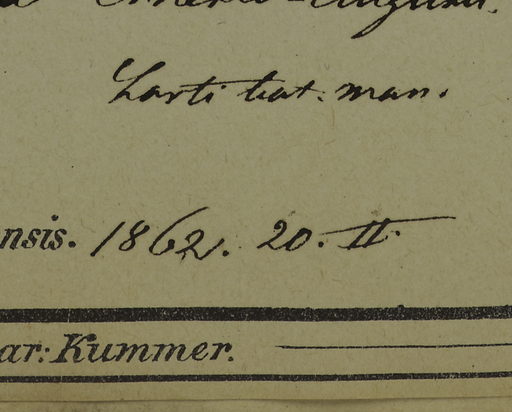 Larti bat. man.
nsis. 1862. 20. II.
ar: Kummer.